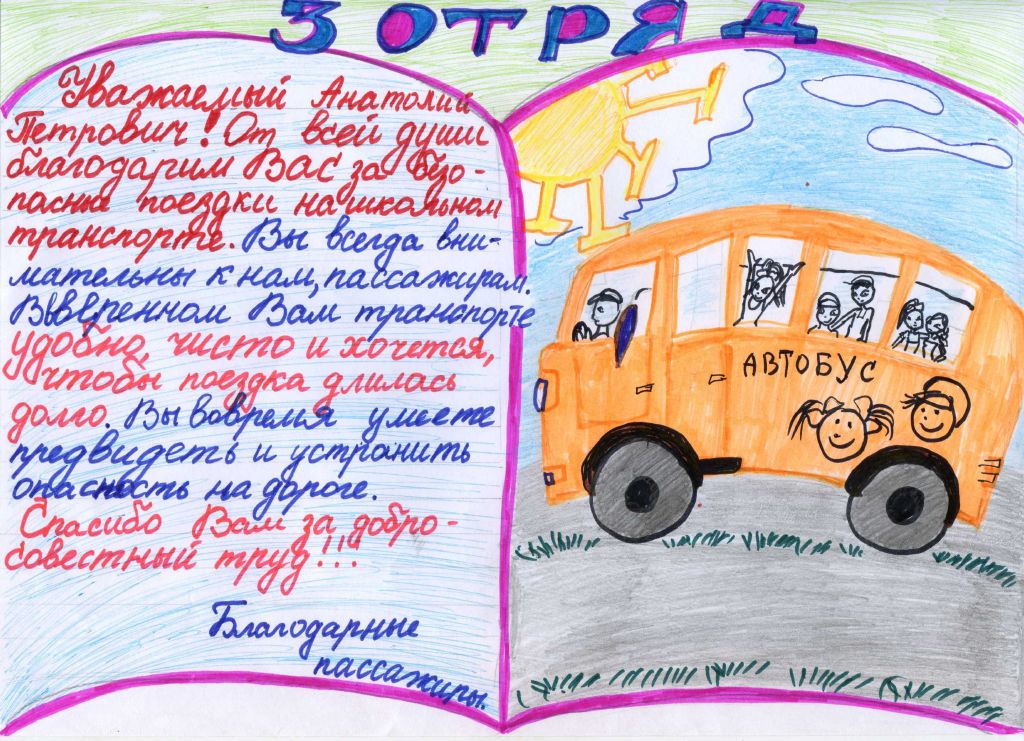 3 ОТРЯД
Уважаемый Анатолий
Петрович! От всей души
благодарим Вас за безо-
пасные поездки на школьном
транспорте. Вы всегда вни-
мательны к нам, пассажирам.
Вввренном Вам транспорте
удобно, чисто и хочется,
чтобы поездка длилась
долго. Вы вовремя умеете
предвидеть и устранить
опасность на дороге.
Спасибо Вам за добро-
совестный труд!!!
Благодарные
пассажиры.
АВТОБУС